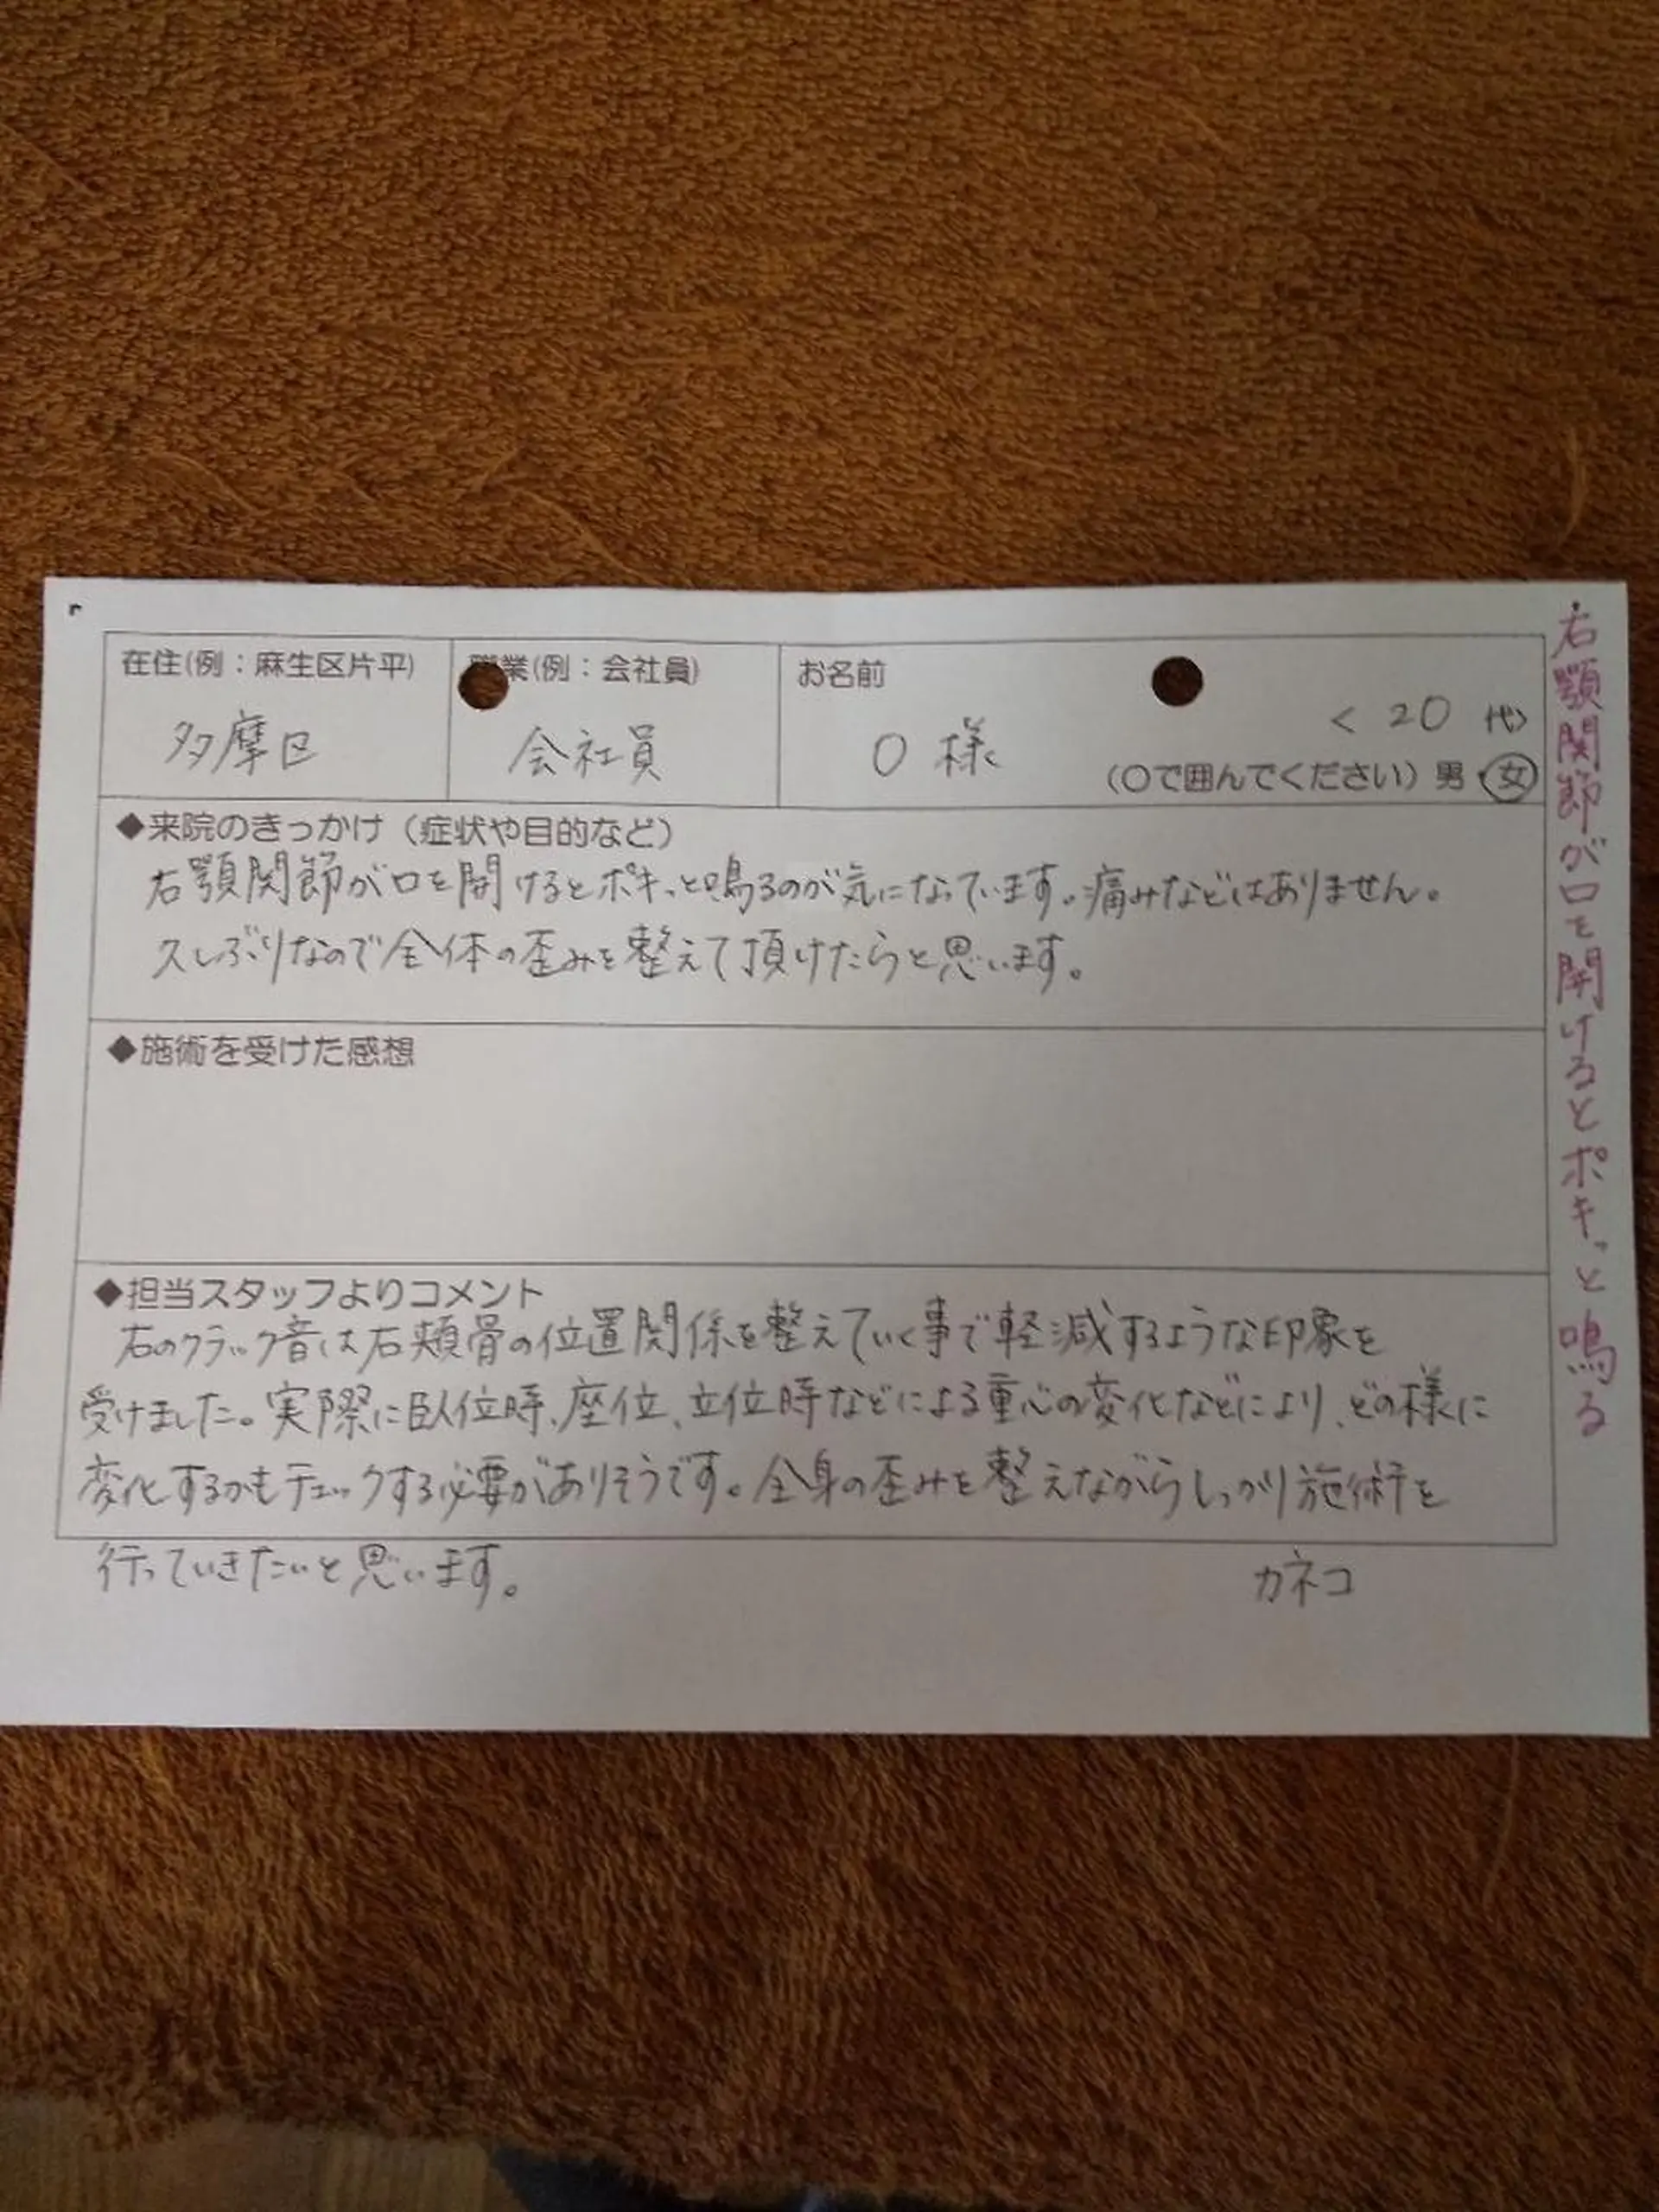 在住(例：麻生区片平)
多摩区
業(例：会社員)
会社員
お名前
O 様
< 20 代>
(○で囲んでください) 男・女
◆来院のきっかけ（症状や目的など）
右顎関節が口を開けるとポキっと鳴るのが気になっています。痛みなどはありません。
久しぶりなので全体の歪みを整えて頂けたらと思います。
◆施術を受けた感想
◆担当スタッフよりコメント
右のクラック音は右頬骨の位置関係を整えていく事で軽減するような印象を
受けました。実際に臥位時、座位、立位時などによる重心の変化などにより、どの様に
変化するかもチェックする必要がありそうです。全身の歪みを整えながらしっかり施術を
行っていきたいと思います。
カネコ
右顎関節が口を開けるとポキっと鳴る